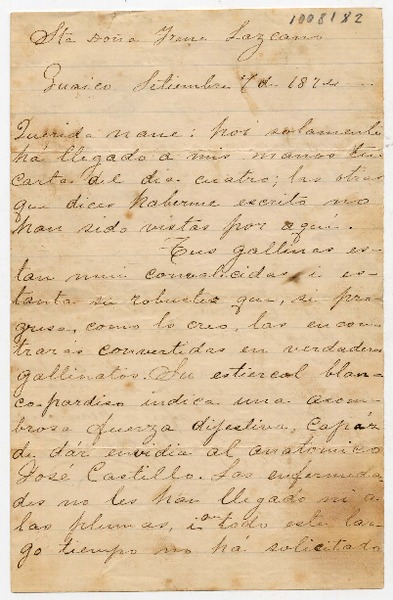 1008182
Sta Doña Irene Lazcano
Guaico Setiembre 7 de 1874
Querida nane: hoi solamente
há llegado a mis manos tu
carta del dia cuatro; las otras
que dices haberme escrito no
han sido vistas por aquí.
Tus gallinas es-
tan mui convalecidas i es
tanta su robustez que, si pro-
gresa, como lo creo, las encon-
trarás convertidas en verdaderos
gallinatos. Su estiercol blan-
co pardiso indica una asom-
brosa fuerza dijestiva, capáz
de dár envidia al anatomico
José Castillo. Las enfermeda-
des no les han llegado ni a
las plumas, i en todo este lar-
go tiempo no há solicitado